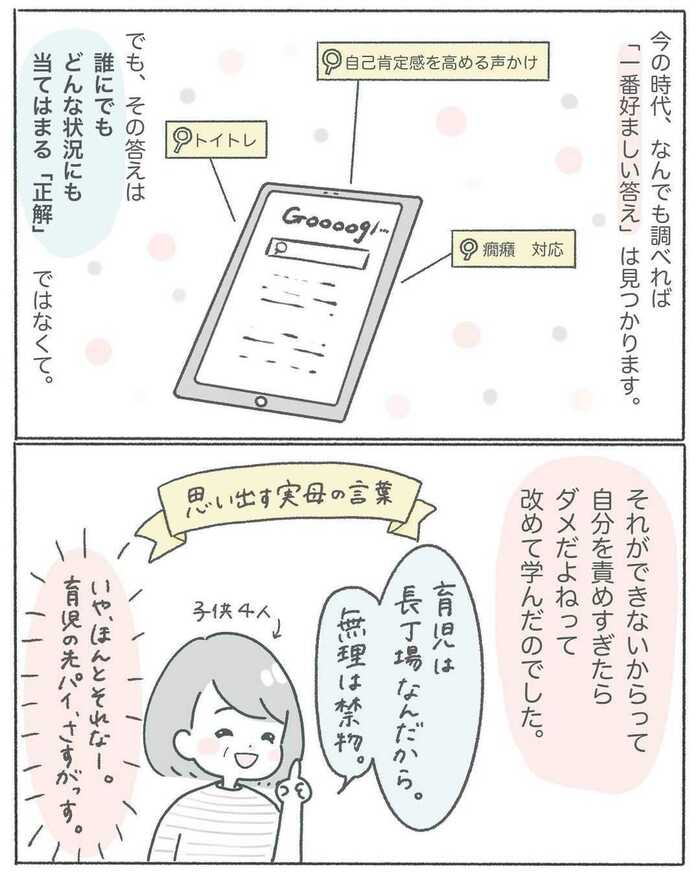 今の時代、なんでも調べれば
「一番好ましい答え」は見つかります。
自己肯定感を高める声かけ
トイトレ
癇癪 対応
Goooogl...
でも、その答えは
誰にでも
どんな状況にも
当てはまる「正解」
ではなくて。
それができないからって
自分を責めすぎたら
ダメだよねって
改めて学んだのでした。
思い出す実母の言葉
育児は
長丁場なんだから。
無理は禁物。
子供4人
いや、ほんとそれなー。
育児の先パイ、さすがっす。